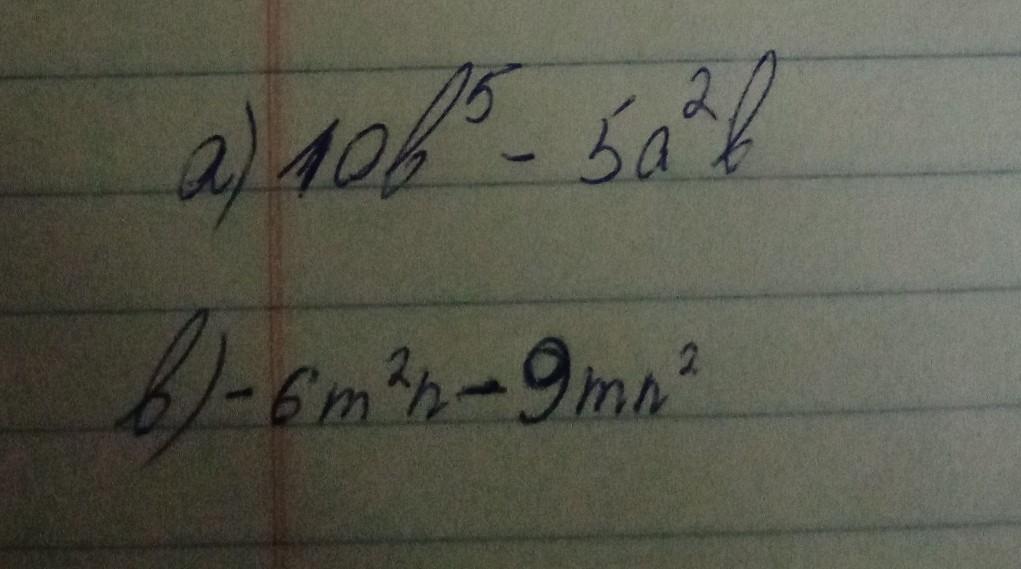 a) 10b⁵ - 5a²b
b) - 6m²n - 9mn²